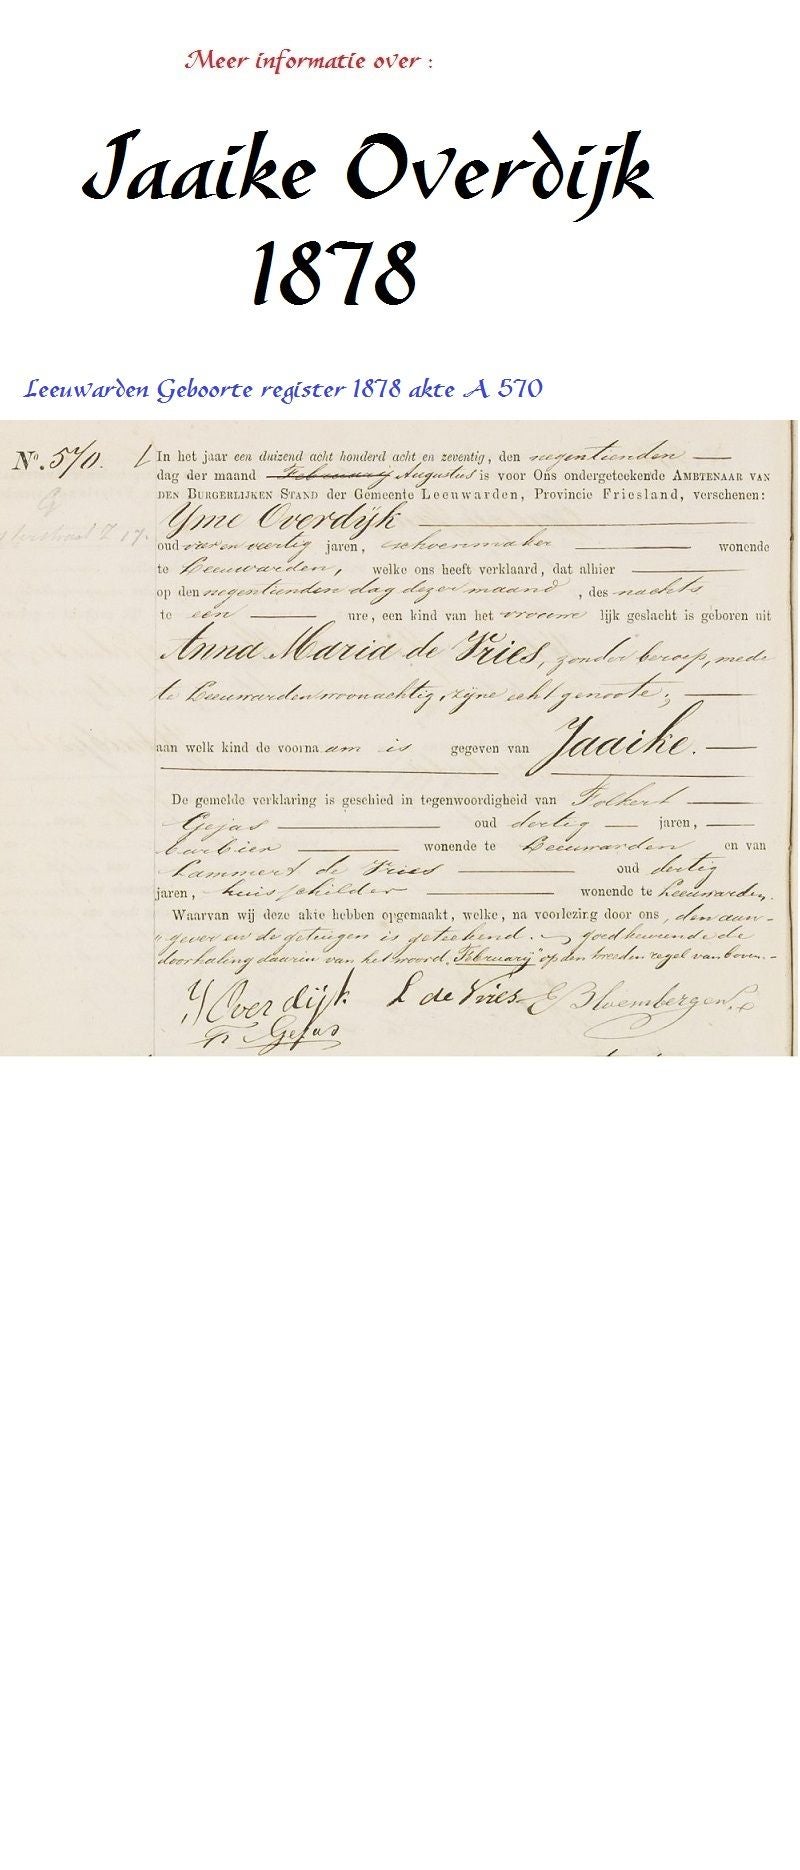 Meer informatie over :
Jaaike Overdijk
1878
Leeuwarden Geboorte register 1878 akte A 570
No. 570.
In het jaar een duizend acht honderd acht en zeventig, den negentienden
dag der maand Februarij Augustus is voor Ons ondergeteekende AMBTENAAR VAN
DEN BURGERLIJKEN STAND der Gemeente Leeuwarden, Provincie Friesland, verschenen:
Yme Overdijk
oud en veertig jaren, schoenmaker wonende
te Leeuwarden, welke ons heeft verklaard, dat alhier
op den negentienden dag dezer maand, des nachts
te een ure, een kind van het vrouwelijk geslacht is geboren uit
Anna Maria de Vries, zonder beroep, mede
te Leeuwarden woonachtig, zijne echtgenoote;
aan welk kind de voornaam is gegeven van Jaaike.
De gemelde verklaring is geschied in tegenwoordigheid van Folkert
Gejas oud dertig jaren,
barbier wonende te Leeuwarden en van
Lammert de Vries oud dertig
jaren, huisschilder wonende te Leeuwarden.
Waarvan wij deze akte hebben opgemaakt, welke, na voorlezing door ons, den aan-
"gever en de getuigen is geteekend. goedkeurende de
doorhaling daarin van het woord "Februarij" op den tweeden regel van boven.
Y Overdijk L de Vries E Bloembergen
F Gejas